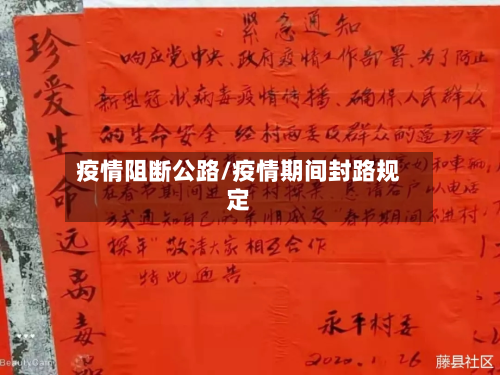 紧急通知
响应党中央、政府疫情工作部署,为了防止
新型冠状病毒疫情传播,确保人民群众
的生命安全,经村两委及群众的迫切要
疫情阻断公路/疫情期间封路规
定
方式通知自己的亲朋戚友“春节期间不进村
探年”敬请大家相互合作
特此通告.
永平村委
2020.1.26
珍爱生命远离毒品
BeautyCam
藤县社区